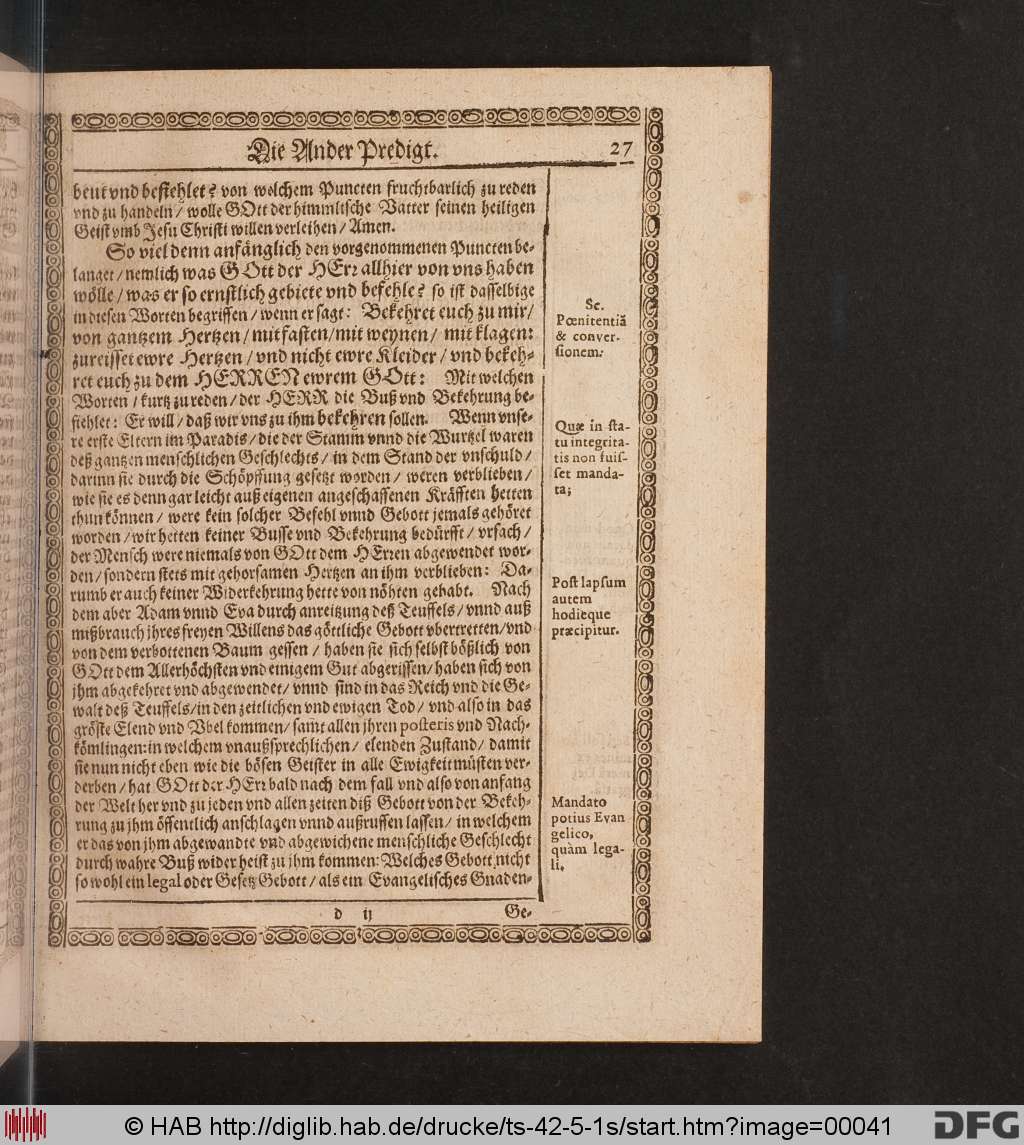 Die Ander Predigt.
27
beut vnd befiehlet? von welchem Puncten fruchtbarlich zu reden
vnd zu handeln / wolle GOtt der himmlische Vatter seinen heiligen
Geist vmb Jesu Christi willen verleihen / Amen.
So viel denn anfänglich den vorgenommenen Puncten be-
langet / nemlich was GOtt der HErr allhier von vns haben
wölle / was er so ernstlich gebiete vnd befehle? so ist dasselbige
in diesen Worten begriffen / wenn er sagt: Bekehret euch zu mir /
von gantzem Hertzen / mit fasten / mit weynen / mit klagen:
zureisset ewre Hertzen / vnd nicht ewre Kleider / vnd bekeh-
ret euch zu dem HERREN ewrem GOtt: Mit welchen
Worten / kurtz zu reden / der HERR die Buß vnd Bekehrung be-
fiehlet: Er will / daß wir vns zu ihm bekehren sollen. Wenn vnse-
re erste Eltern im Paradis / die der Stamm vnnd die Wurtzel waren
deß gantzen menschlichen Geschlechts / in dem Stand der vnschuld /
darinn sie durch die Schöpffung gesetzt worden / weren verblieben /
wie sie es denn gar leicht auß eigenen angeschaffenen Kräfften hetten
thun können / were kein solcher Befehl vnnd Gebott jemals gehöret
worden / wir hetten keiner Busse vnd Bekehrung bedürfft / vrsach /
der Mensch were niemals von GOtt dem HErren abgewendet wor-
den / sondern stets mit gehorsamen Hertzen an ihm verblieben: Da-
rumb er auch keiner Widerkehrung hette von nöhten gehabt. Nach
dem aber Adam vnnd Eva durch anreitzung deß Teuffels / vnnd auß
mißbrauch jhres freyen Willens das göttliche Gebott vbertretten / vnd
von dem verbottenen Baum gessen / haben sie sich selbst bößlich von
GOtt dem Allerhöchsten vnd einigem Gut abgerissen / haben sich von
jhm abgekehret vnd abgewendet / vnnd sind in das Reich vnd die Ge-
walt deß Teuffels / in den zeitlichen vnd ewigen Tod / vnd also in das
gröste Elend vnd Vbel kommen / samt allen jhren posteris vnd Nach-
kömlingen: in welchem vnaußsprechlichen / elenden Zustand / damit
sie nun nicht eben wie die bösen Geister in alle Ewigkeit müsten ver-
derben / hat GOtt der HErr bald nach dem fall vnd also von anfang
der Welt her vnd zu jeden vnd allen zeiten diß Gebott von der Bekeh-
rung zu jhm öffentlich anschlagen vnnd außruffen lassen / in welchem
er das von jhm abgewandte vnd abgewichene menschliche Geschlecht
durch wahre Buß wider heist zu jhm kommen: Welches Gebott nicht
so wohl ein legal oder Gesetz Gebott / als ein Evangelisches Gnaden-
Sc.
Pœnitentiã
& conver-
sionem:
Quæ in sta-
tu integrita-
tis non fuis-
set manda-
ta;
Post lapsum
autem
hodieque
præcipitur.
Mandato
potius Evan
gelico,
quàm lega-
li.
d ij
Ge-
© HAB http://diglib.hab.de/drucke/ts-42-5-1s/start.htm?image=00041
DFG